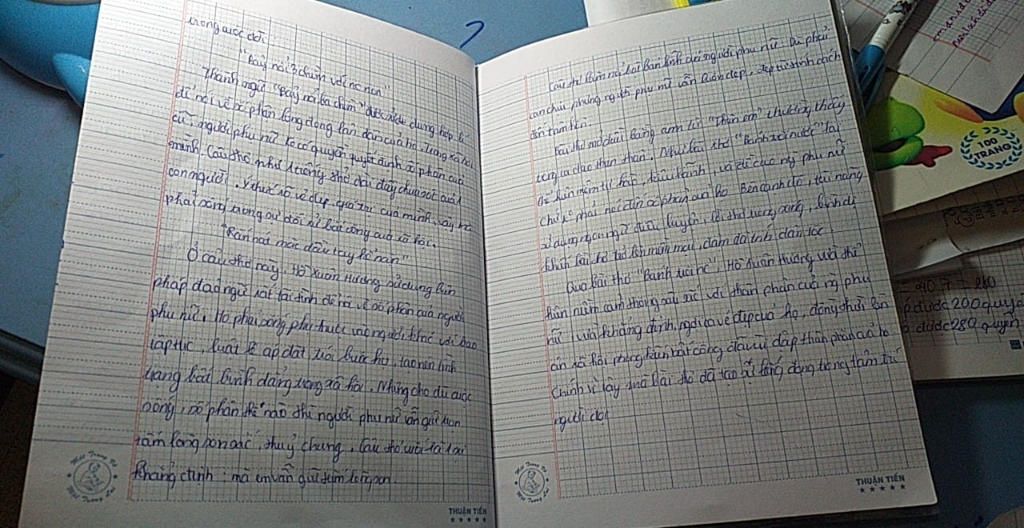 trong cuộc đời.
"Bảy nổi 3 chìm với nước non"
Thành ngữ "Bảy nổi ba chìm" được vận dụng hợp lí
để nói về số phận lênh đênh lận đận của họ. Trong xã hội
cũ, người phụ nữ ko có quyền quyết định số phận của
mình. Câu thơ như tiếng thở dài đầy chua xót của 1
con người. Ý thức rõ vẻ đẹp, giá trị của mình vậy mà
phải sống trong sự đối xử bất công của xã hội.
"Rắn nát mặc dầu tay kẻ nặn"
Ở câu thơ này, Hồ Xuân Hương sử dụng biện
pháp đảo ngữ rất tài tình để tả về số phận của người
phụ nữ. Họ phải sống phụ thuộc vào người khác với bao
tập tục, luật lệ áp đặt trói buộc họ, tạo nên tình
trạng bất bình đẳng trong xã hội. Nhưng cho dù cuộc
sống, số phận thế nào thì người phụ nữ vẫn giữ trọn
tấm lòng son sắc, thuỷ chung. Câu thơ cuối là lời
khẳng định: mà em vẫn giữ tấm lòng son.
THUẬN TIẾN
Câu thơ làm nổi bật bản lĩnh của người phụ nữ. Dù phải
chịu nhưng người phụ nữ vẫn luôn đẹp, đẹp từ tính cách
đến tâm hồn.
Bài thơ mở đầu bằng cụm từ "Thân em" thường thấy
trong ca dao than thân. Nhưng bài thơ "Bánh trôi nước" lại
thể hiện niềm tự hào, kiêu hãnh, và đề cao ng phụ nữ
chứ k phải nói đến số phận của họ. Bên cạnh đó, tài năng
sử dụng ngôn ngữ điêu luyện, lời thơ trong sáng, bình dị
khiến bài thơ trở lên mềm mại, đậm đà tính dân tộc.
Qua bài thơ "Bánh trôi nc", Hồ Xuân Hương vừa thể
hiện niềm cảm thông sâu sắc với thân phận của ng phụ
nữ, vừa khẳng định, ngợi ca vẻ đẹp của họ, đồng thời lên
án xã hội phong kiến bất công đã vùi dập thân phận của họ.
Chính vì vậy mà bài thơ đã tạo sự lắng đọng trong tâm trí
người đọc
THUẬN TIẾN
100
TRANG
được 200 quyển
được 280 quyển